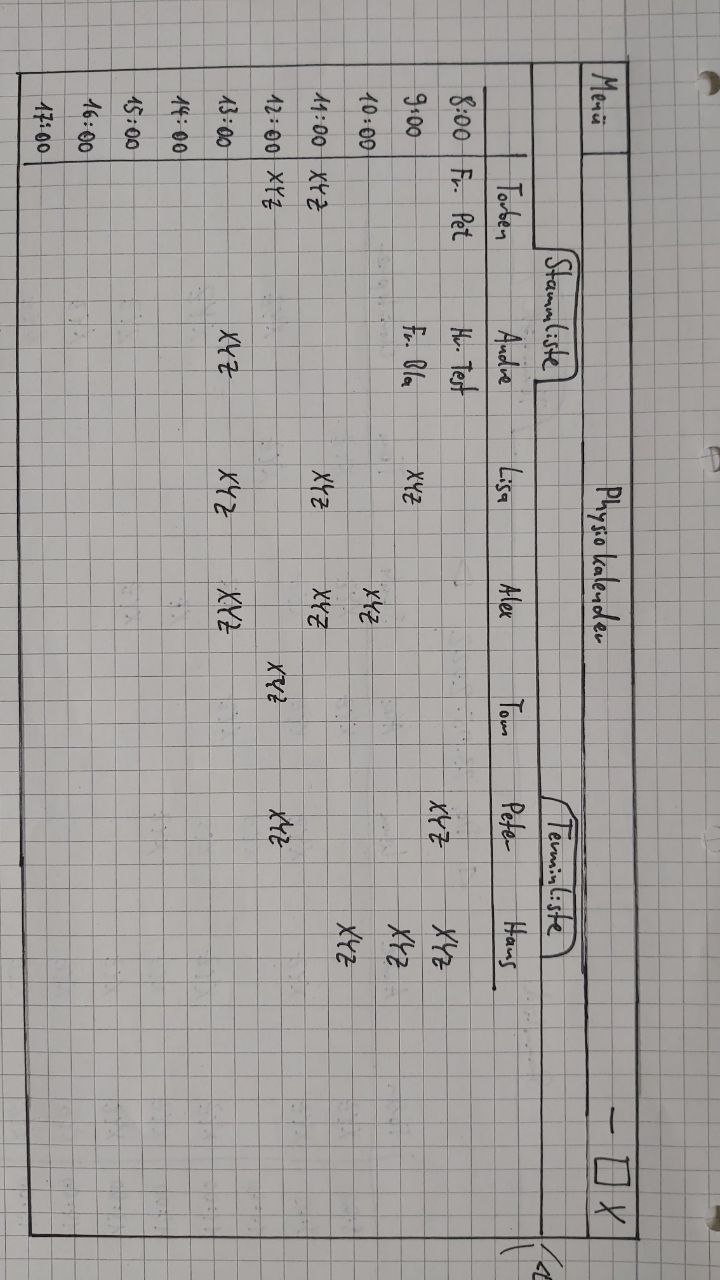 Menü Physiokalender — □ X
Stammliste Terminliste
Torben Andre Lisa Alex Tom Peter Hans
8:00 Fr. Pet Hr. Test XYZ XYZ
9:00 Fr. Bla XYZ XYZ
10:00 XYZ XYZ
11:00 XYZ XYZ XYZ
12:00 XYZ XYZ XYZ
13:00 XYZ XYZ XYZ
14:00
15:00
16:00
17:00